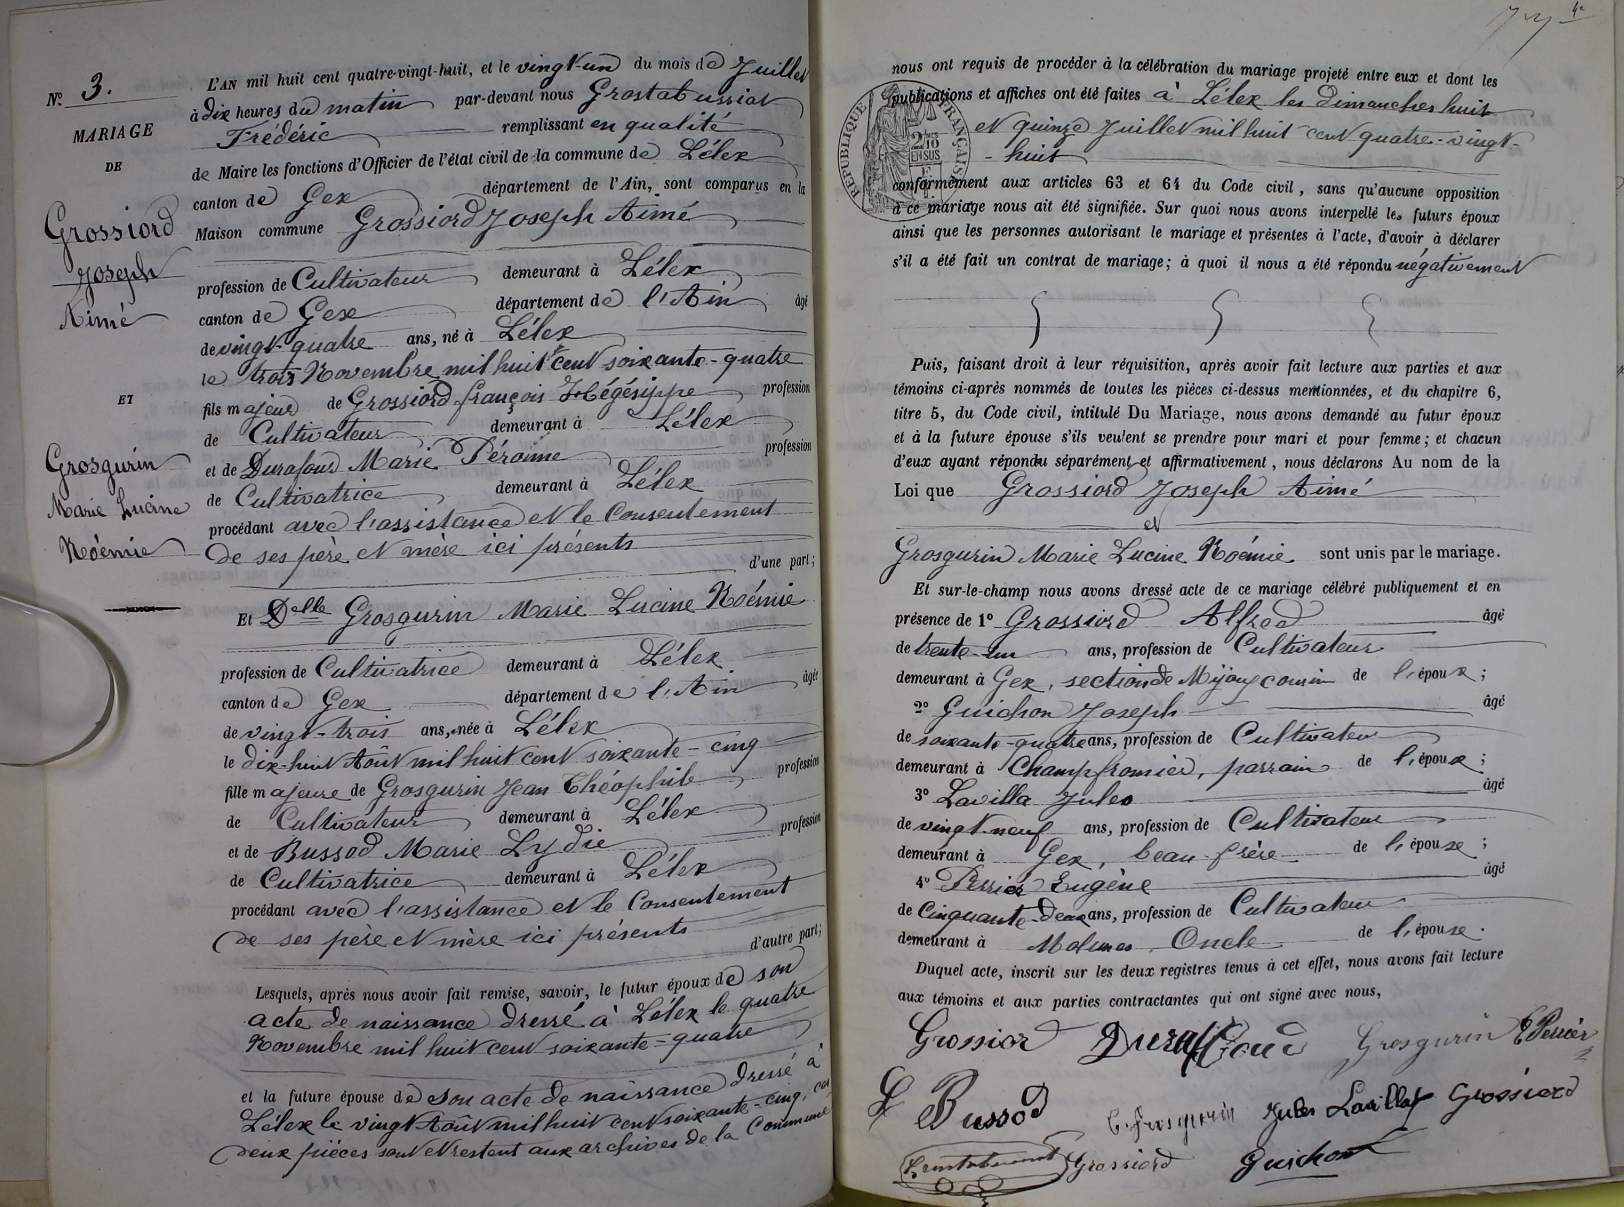 N° 3.
MARIAGE
DE
Grossiord
Joseph
Aimé
ET
Grosgurin
Marie Lucine
Noémie
L'AN mil huit cent quatre-vingt-huit, et le vingt-un du mois de Juillet
à dix heures du matin par-devant nous Grostabussiat
Frédéric remplissant en qualité
de Maire les fonctions d'Officier de l'état civil de la commune de Lélex
canton de Gex département de l'Ain, sont comparus en la
Maison commune Grossiord Joseph Aimé
profession de Cultivateur demeurant à Lélex
canton de Gex département de l'Ain âgé
de vingt-quatre ans, né à Lélex
le trois Novembre mil huit cent soixante-quatre
fils majeur de Grossiord françois Hégésippe profession
de Cultivateur demeurant à Lélex
et de Durafour Marie Péroline profession
de Cultivatrice demeurant à Lélex
procédant avec l'assistance et le Consentement
de ses père et mère ici présents
d'une part;
Et Delle Grosgurin Marie Lucine Noémie
profession de Cultivatrice demeurant à Lélex
canton de Gex département de l'Ain âgée
de vingt-trois ans, née à Lélex
le dix-huit Août mil huit cent soixante-cinq
fille majeure de Grosgurin Jean Théophile profession
de Cultivateur demeurant à Lélex
et de Bussod Marie Lydie profession
de Cultivatrice demeurant à Lélex
procédant avec l'assistance et le Consentement
de ses père et mère ici présents
d'autre part;
Lesquels, après nous avoir fait remise, savoir, le futur époux de son
acte de naissance dressé à Lélex le quatre
Novembre mil huit cent soixante-quatre
et la future épouse de son acte de naissance dressé à
Lélex le vingt Août mil huit cent soixante-cinq, ces
deux pièces sont et restent aux archives de la Commune
nous ont requis de procéder à la célébration du mariage projeté entre eux et dont les
publications et affiches ont été faites à Lélex les dimanches huit
et quinze Juillet mil huit cent quatre-vingt-
-huit
RÉPUBLIQUE FRANÇAISE
conformément aux articles 63 et 64 du Code civil, sans qu'aucune opposition
à ce mariage nous ait été signifiée. Sur quoi nous avons interpellé les futurs époux
ainsi que les personnes autorisant le mariage et présentes à l'acte, d'avoir à déclarer
s'il a été fait un contrat de mariage; à quoi il nous a été répondu négativement
Puis, faisant droit à leur réquisition, après avoir fait lecture aux parties et aux
témoins ci-après nommés de toutes les pièces ci-dessus mentionnées, et du chapitre 6,
titre 5, du Code civil, intitulé Du Mariage, nous avons demandé au futur époux
et à la future épouse s'ils veulent se prendre pour mari et pour femme; et chacun
d'eux ayant répondu séparément et affirmativement, nous déclarons Au nom de la
Loi que Grossiord Joseph Aimé
et
Grosgurin Marie Lucine Noémie sont unis par le mariage.
Et sur-le-champ nous avons dressé acte de ce mariage célébré publiquement et en
présence de 1° Grossiord Alfred âgé
de trente-un ans, profession de Cultivateur
demeurant à Gex, section de Mijoux cousin de l'époux;
2° Guichon Joseph âgé
de soixante-quatre ans, profession de Cultivateur
demeurant à Champfromier, parrain de l'époux;
3° Lavilla Jules âgé
de vingt-neuf ans, profession de Cultivateur
demeurant à Gex, beau-frère de l'épouse;
4° Perrier Eugène âgé
de Cinquante-deux ans, profession de Cultivateur
demeurant à Molunes Oncle de l'épouse.
Duquel acte, inscrit sur les deux registres tenus à cet effet, nous avons fait lecture
aux témoins et aux parties contractantes qui ont signé avec nous,
Grossiord Duraffourd Grosgurin E Perrier
L Bussod Grosgurin Jules Lavillat Grossiord
Grossiord Guichon